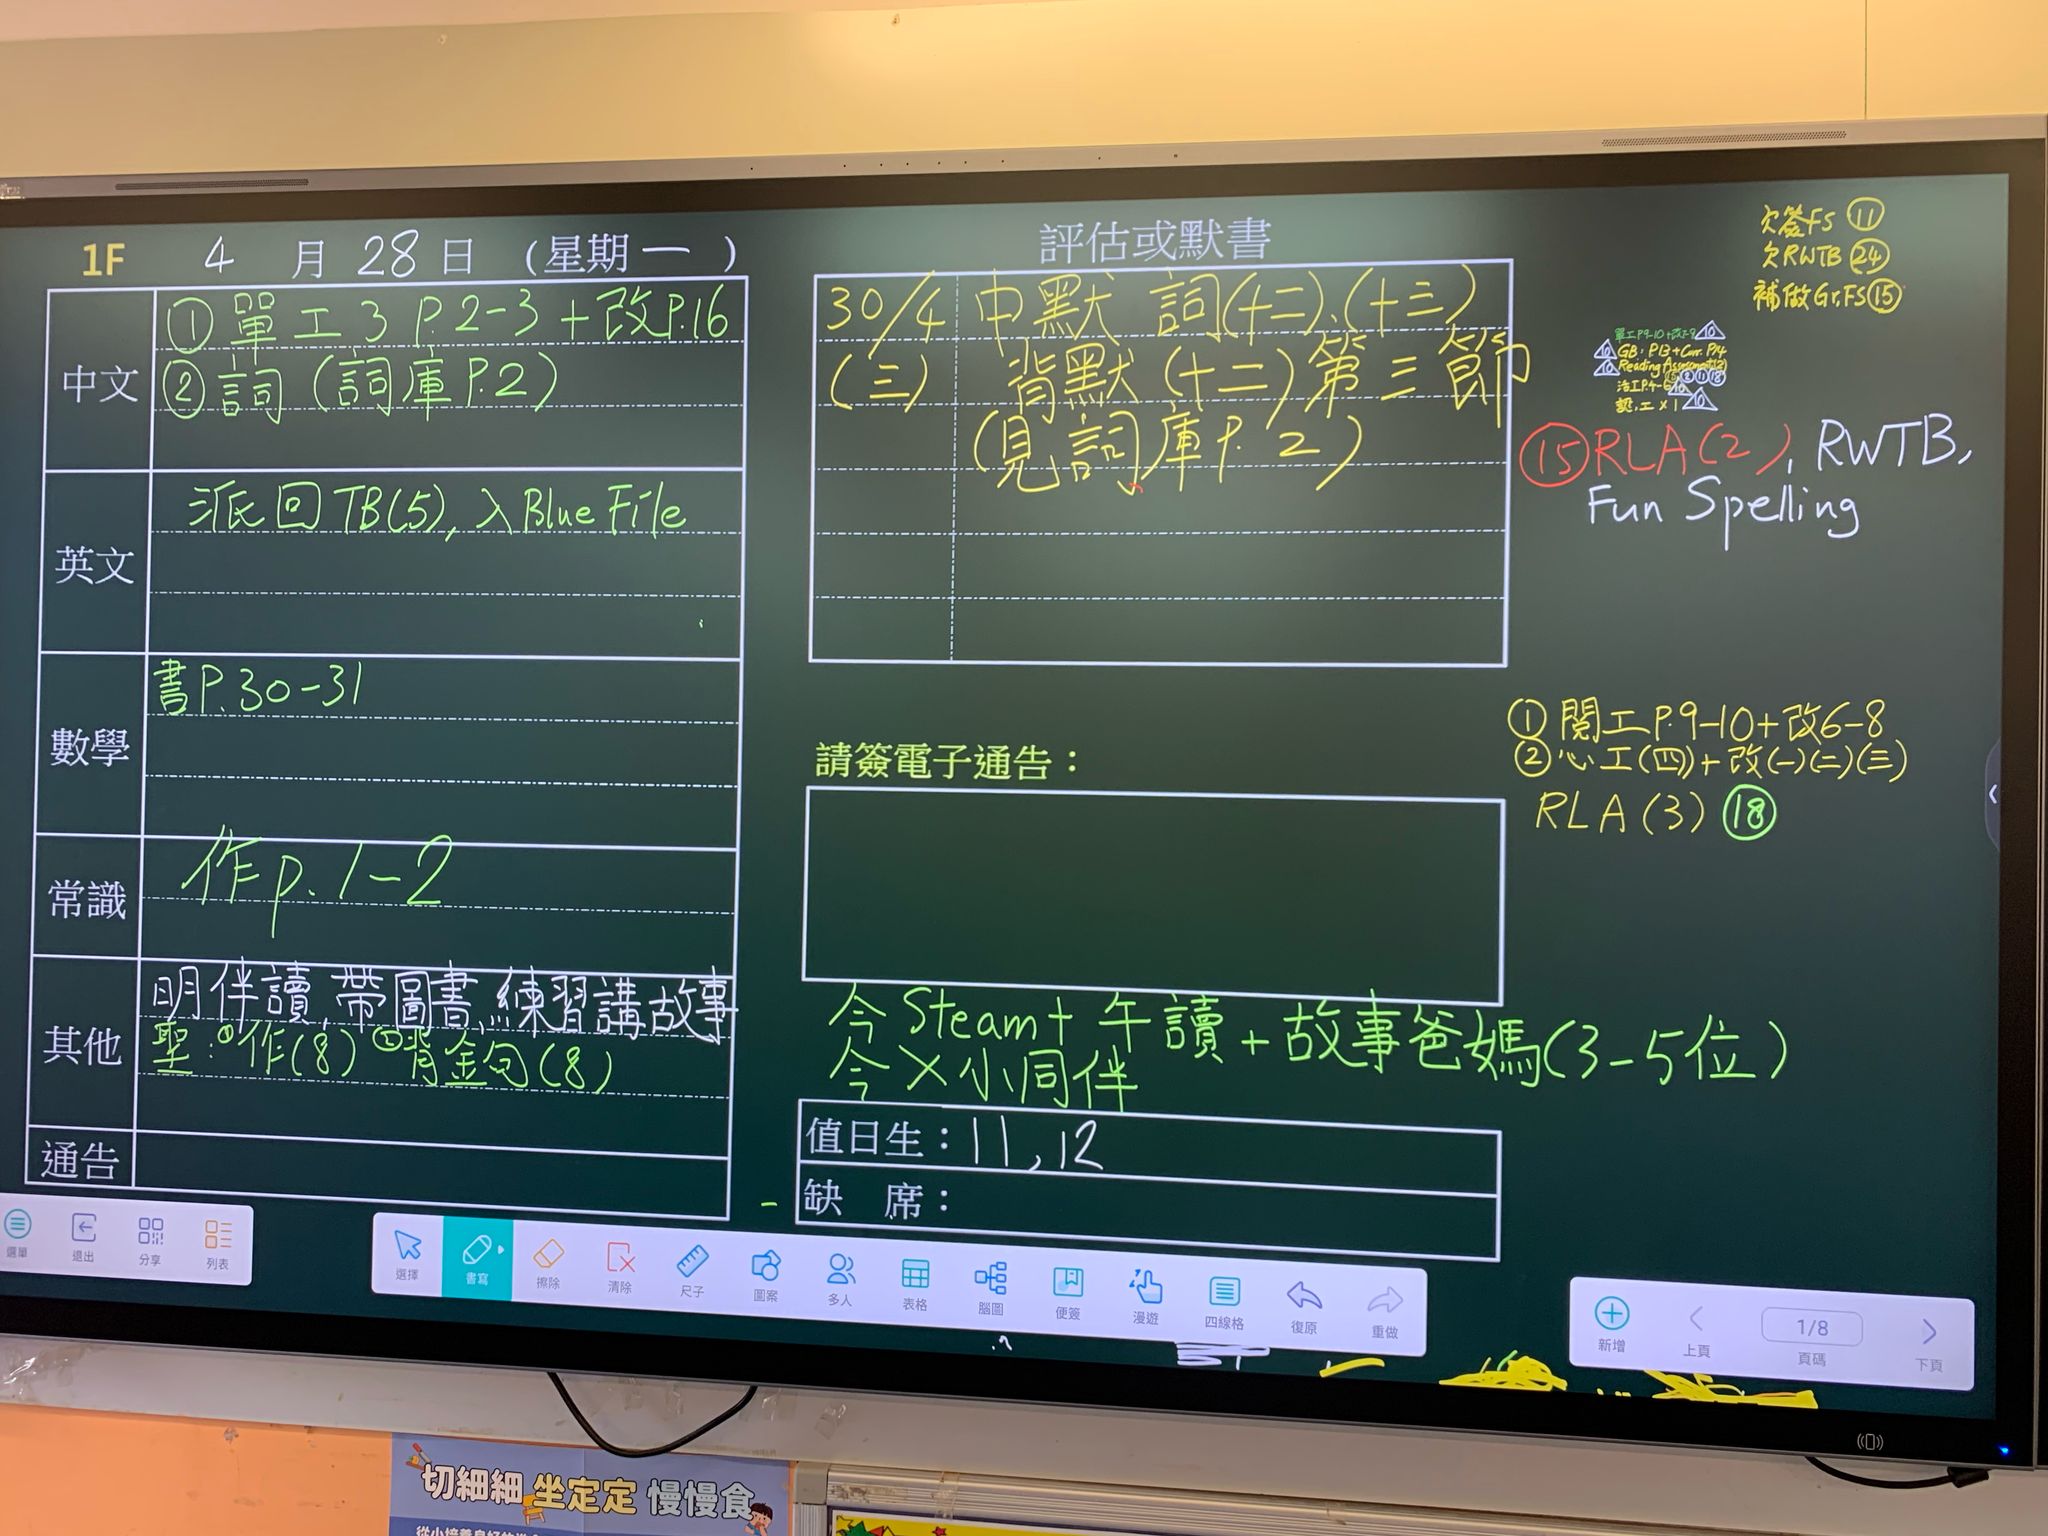 1F 4月28日(星期一)
中文
①單工3 P.2-3+改P.16
②詞(詞庫P.2)
英文
派回TB(5),入Blue File
數學
書P.30-31
常識
作p.1-2
其他
明伴讀,帶圖書,練習講故事
聖:①作(8)②背金句(8)
通告
評估或默書
30/4 中默 詞(十二)、(十三)
(三) 背默(十二)第三節
(見詞庫P.2)
請簽電子通告:
今Steam+午讀+故事爸媽(3-5位)
今X小同伴
值日生:11,12
缺 席:
欠簽FS ⑪
欠RWTB ㉔
補做Gr.FS⑮
單工P9-10+改7-8 10
10 GB:P13+Corr.P14
10 Reading Assessment(2)
⑮②⑪⑱
10
工×1 10
⑮RLA(2), RWTB,
Fun Spelling
①閱工P.9-10+改6-8
②心工(四)+改(一)(二)(三)
RLA(3) ⑱
選單 退出 分享 列表
選擇 書寫 擦除 清除 尺子 圖案 多人 表格 腦圖 便簽 漫遊 四線格 復原 重做
新增 上頁 1/8 頁碼 下頁
切細細 坐定定 慢慢食